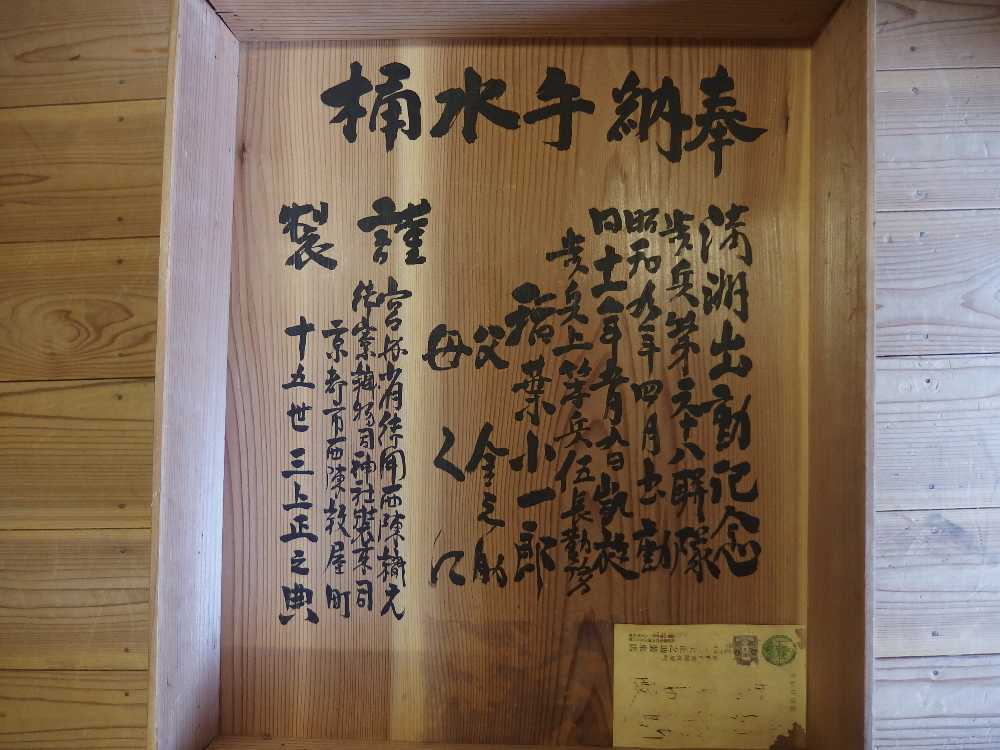 奉納手水桶
満洲出動記念
歩兵第六十八聯隊
昭和九年四月出動
同十一年五月九日凱旋
歩兵上等兵伍長勤務
稲葉小一郎
父 金之助
母 く に
謹製
宮内省御用西陣織元
神社装束司
京都市西陣紋屋町
十五世三上正之典